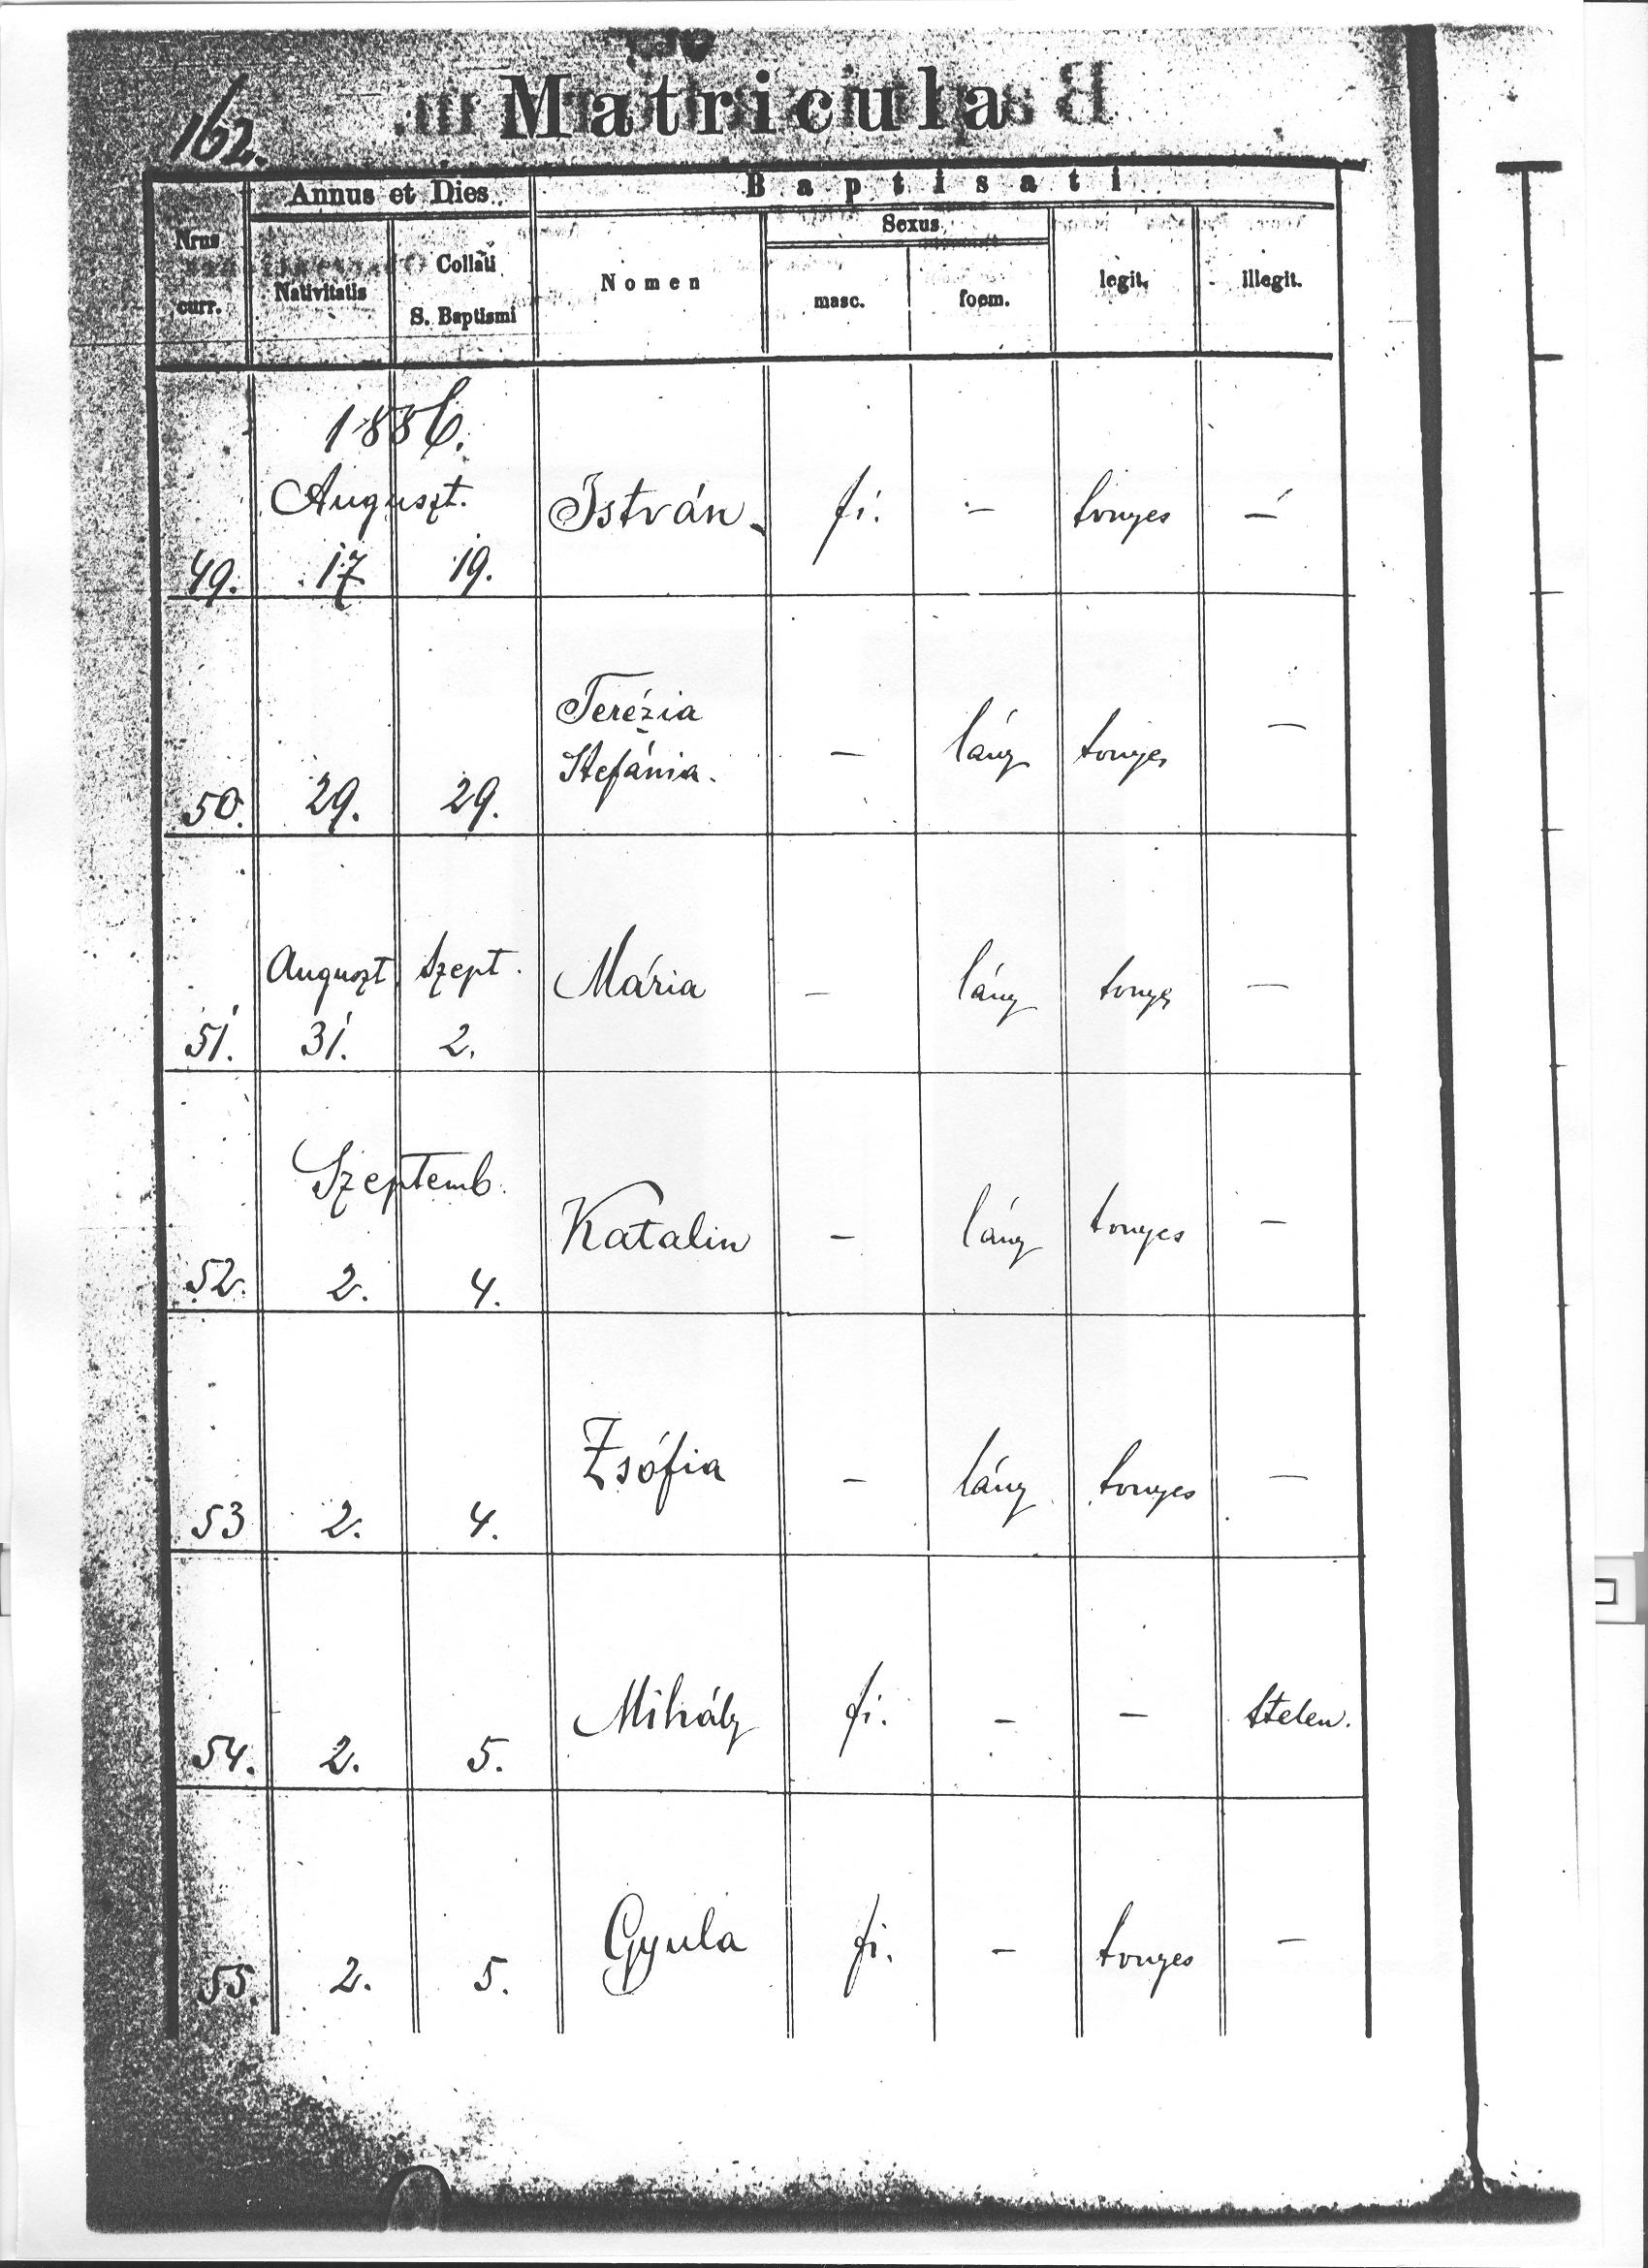 162.
Matricula
Annus et Dies
Baptisati
Nrus
curr.
Nativitatis
Collati
S. Baptismi
Nomen
Sexus
masc.
foem.
legit.
illegit.
1886.
Auguszt.
49. 17 19. István fi. – tvnyes –
50. 29. 29. Terézia
Stefánia. – lány tvnyes –
Auguszt Szept.
51. 31. 2. Mária – lány tvnys –
Szeptemb.
52. 2. 4. Katalin – lány tvnyes –
53 2. 4. Zsófia – lány tvnyes –
54. 2. 5. Mihály fi. – – ttelen.
55. 2. 5. Gyula fi. – tvnyes –